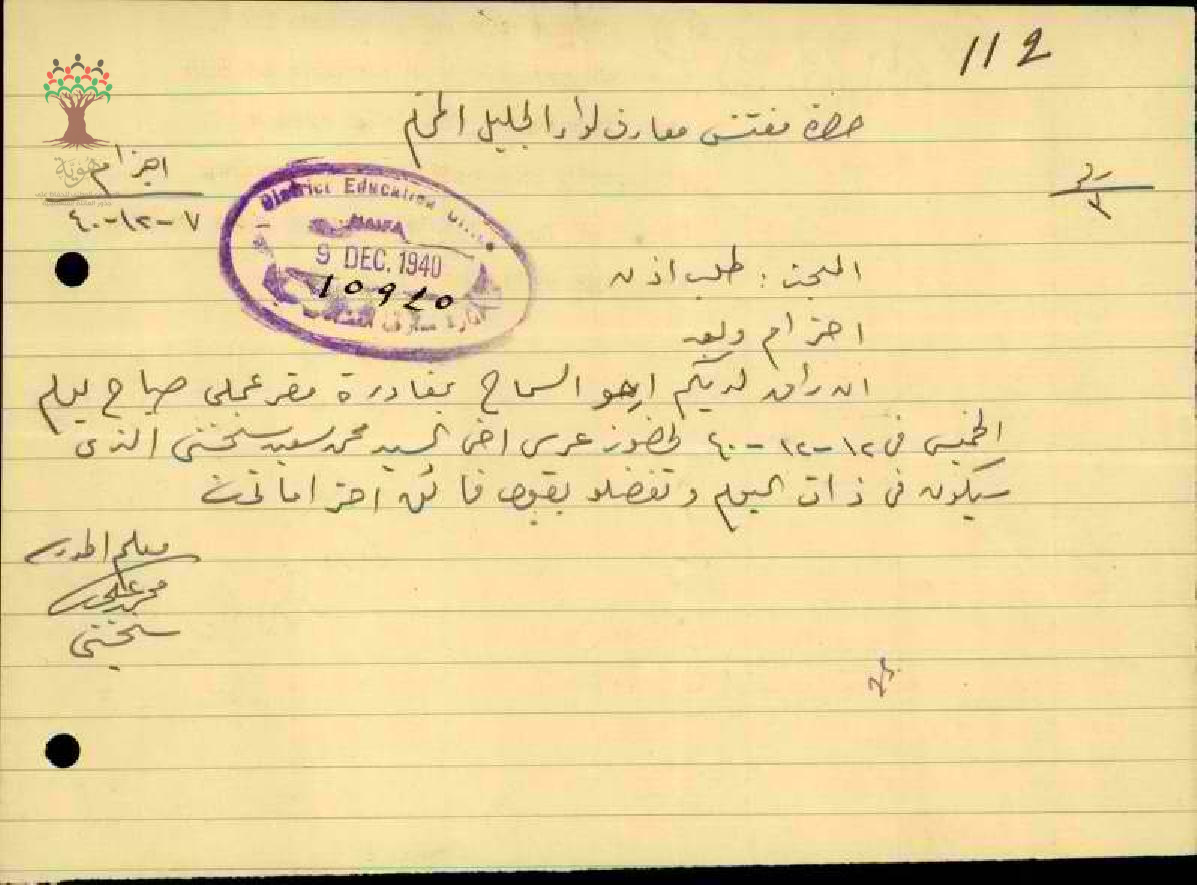 112
حضرة مفتش معارف لواء الجليل المحترم
اجزم
٧-١٢-٤٠
رقم
٣
District Education Office
HAIFA
9 DEC. 1940
10920
المبحث : طلب اذن
احترام وبعد
ان راق لديكم ارجو السماح بمغادرة مقر عملي صباح يوم
الخميس في ١٢-١٢-٤٠ لحضور عرس اخي السيد محمد سعيد سختي الذي
سيكون في ذات اليوم وتفضلو بقبول فائق احتراماتي
معلم المدرسة
محمد علي
هوية